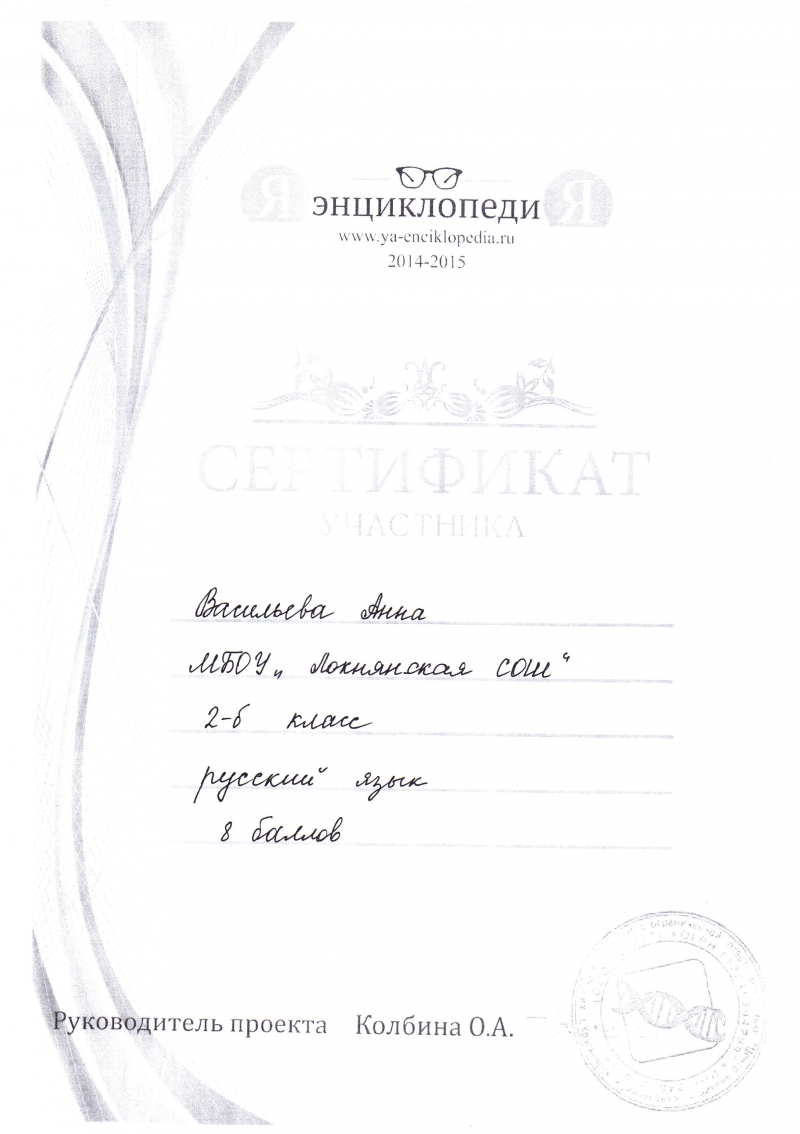 Я ЭНЦИКЛОПЕДИ Я
www.ya-enciklopedia.ru
2014-2015
СЕРТИФИКАТ
УЧАСТНИКА
Васильева Анна
МБОУ „ Локнянская СОШ “
2-б класс
русский язык
8 баллов
Руководитель проекта Колбина О.А.